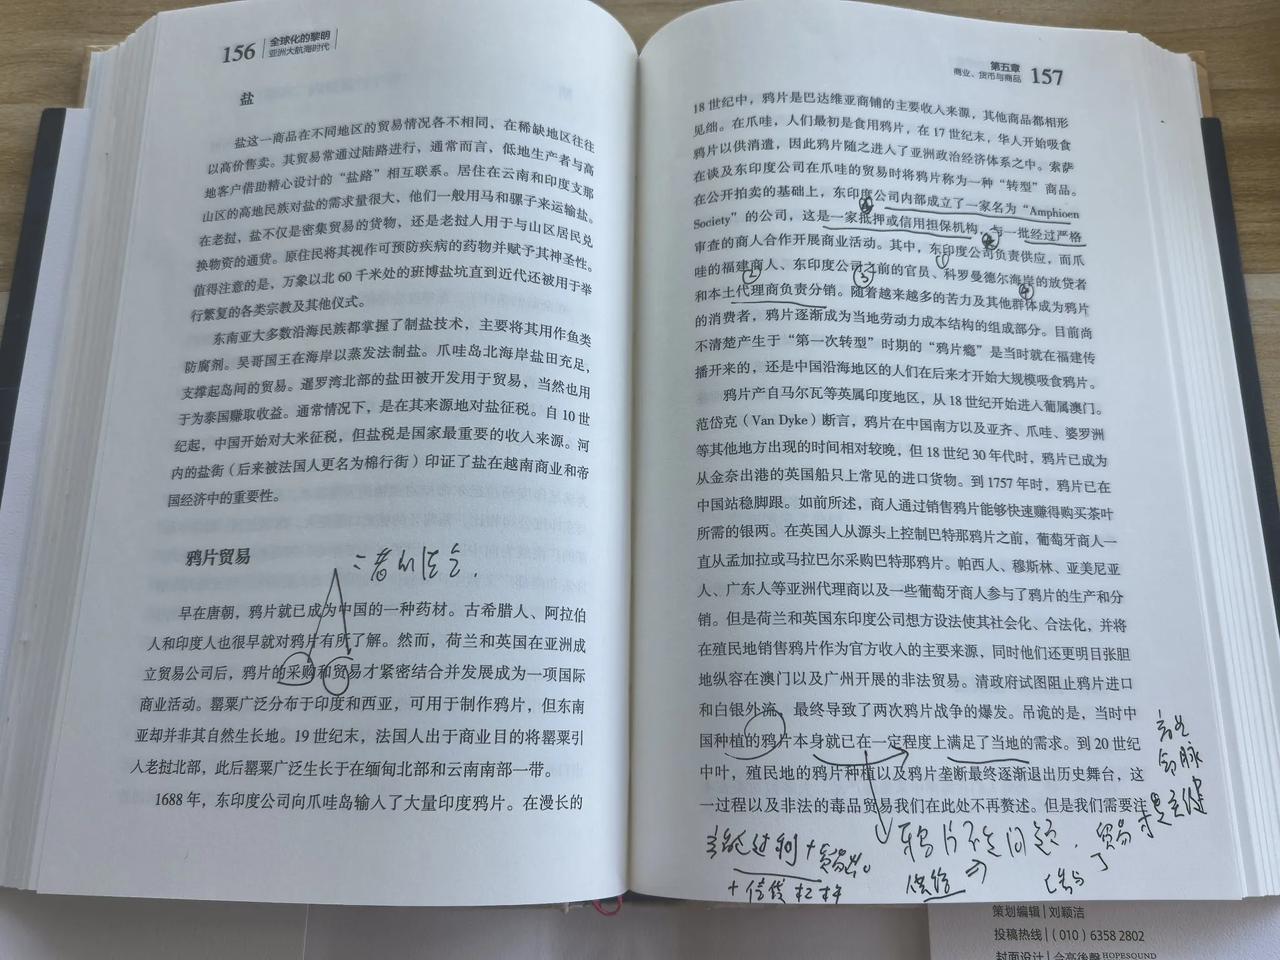 156
全球化的黎明
亚洲大航海时代
盐
盐这一商品在不同地区的贸易情况各不相同，在稀缺地区往往
以高价售卖。其贸易常通过陆路进行，通常而言，低地生产者与高
地客户借助精心设计的“盐路”相互联系。居住在云南和印度支那
山区的高地民族对盐的需求量很大，他们一般用马和骡子来运输盐。
在老挝，盐不仅是密集贸易的货物，还是老挝人用于与山区居民兑
换物资的通货。原住民将其视作可预防疾病的药物并赋予其神圣性。
值得注意的是，万象以北60千米处的班博盐坑直到近代还被用于举
行繁复的各类宗教及其他仪式。
东南亚大多数沿海民族都掌握了制盐技术，主要将其用作鱼类
防腐剂。吴哥国王在海岸以蒸发法制盐。爪哇岛北海岸盐田充足，
支撑起岛间的贸易。暹罗湾北部的盐田被开发用于贸易，当然也用
于为泰国赚取收益。通常情况下，是在其来源地对盐征税。自10世
纪起，中国开始对大米征税，但盐税是国家最重要的收入来源。河
内的盐街（后来被法国人更名为棉行街）印证了盐在越南商业和帝
国经济中的重要性。
鸦片贸易
二者的结合.
早在唐朝，鸦片就已成为中国的一种药材。古希腊人、阿拉伯
人和印度人也很早就对鸦片有所了解。然而，荷兰和英国在亚洲成
立贸易公司后，鸦片的采购和贸易才紧密结合并发展成为一项国际
商业活动。罂粟广泛分布于印度和西亚，可用于制作鸦片，但东南
亚却并非其自然生长地。19世纪末，法国人出于商业目的将罂粟引
入老挝北部，此后罂粟广泛生长于在缅甸北部和云南南部一带。
1688年，东印度公司向爪哇岛输入了大量印度鸦片。在漫长的
第五章
商业、货币与商品
157
18世纪中，鸦片是巴达维亚商铺的主要收入来源，其他商品都相形
见绌。在爪哇，人们最初是食用鸦片，在17世纪末，华人开始吸食
鸦片以供消遣，因此鸦片随之进入了亚洲政治经济体系之中。索萨
在谈及东印度公司在爪哇的贸易时将鸦片称为一种“转型”商品。
在公开拍卖的基础上，东印度公司内部成立了一家名为“Amphioen
Society”的公司，这是一家抵押或信用担保机构，与一批经过严格
审查的商人合作开展商业活动。其中，东印度公司负责供应，而爪
哇的福建商人、东印度公司之前的官员、科罗曼德尔海岸的放贷者
① ② ③ ④
和本土代理商负责分销。随着越来越多的苦力及其他群体成为鸦片
的消费者，鸦片逐渐成为当地劳动力成本结构的组成部分。目前尚
不清楚产生于“第一次转型”时期的“鸦片瘾”是当时就在福建传
播开来的，还是中国沿海地区的人们在后来才开始大规模吸食鸦片。
鸦片产自马尔瓦等英属印度地区，从18世纪开始进入葡属澳门。
范岱克（Van Dyke）断言，鸦片在中国南方以及亚齐、爪哇、婆罗洲
等其他地方出现的时间相对较晚，但18世纪30年代时，鸦片已成为
从金奈出港的英国船只上常见的进口货物。到1757年时，鸦片已在
中国站稳脚跟。如前所述，商人通过销售鸦片能够快速赚得购买茶叶
所需的银两。在英国人从源头上控制巴特那鸦片之前，葡萄牙商人一
直从孟加拉或马拉巴尔采购巴特那鸦片。帕西人、穆斯林、亚美尼亚
人、广东人等亚洲代理商以及一些葡萄牙商人参与了鸦片的生产和分
销。但是荷兰和英国东印度公司想方设法使其社会化、合法化，并将
在殖民地销售鸦片作为官方收入的主要来源，同时他们还更明目张胆
地纵容在澳门以及广州开展的非法贸易。清政府试图阻止鸦片进口
和白银外流，最终导致了两次鸦片战争的爆发。吊诡的是，当时中
国种植的鸦片本身就已在一定程度上满足了当地的需求。到20世纪
中叶，殖民地的鸦片种植以及鸦片垄断最终逐渐退出历史舞台，这
一过程以及非法的毒品贸易我们在此处不再赘述。但是我们需要注
命脉
是关键
鸦片不是问题.
贸易
供给
+信贷杠杆
策划编辑｜刘颖洁
投稿热线｜(010) 6358 2802
封面设计｜今亮後聲 HOPESOUND